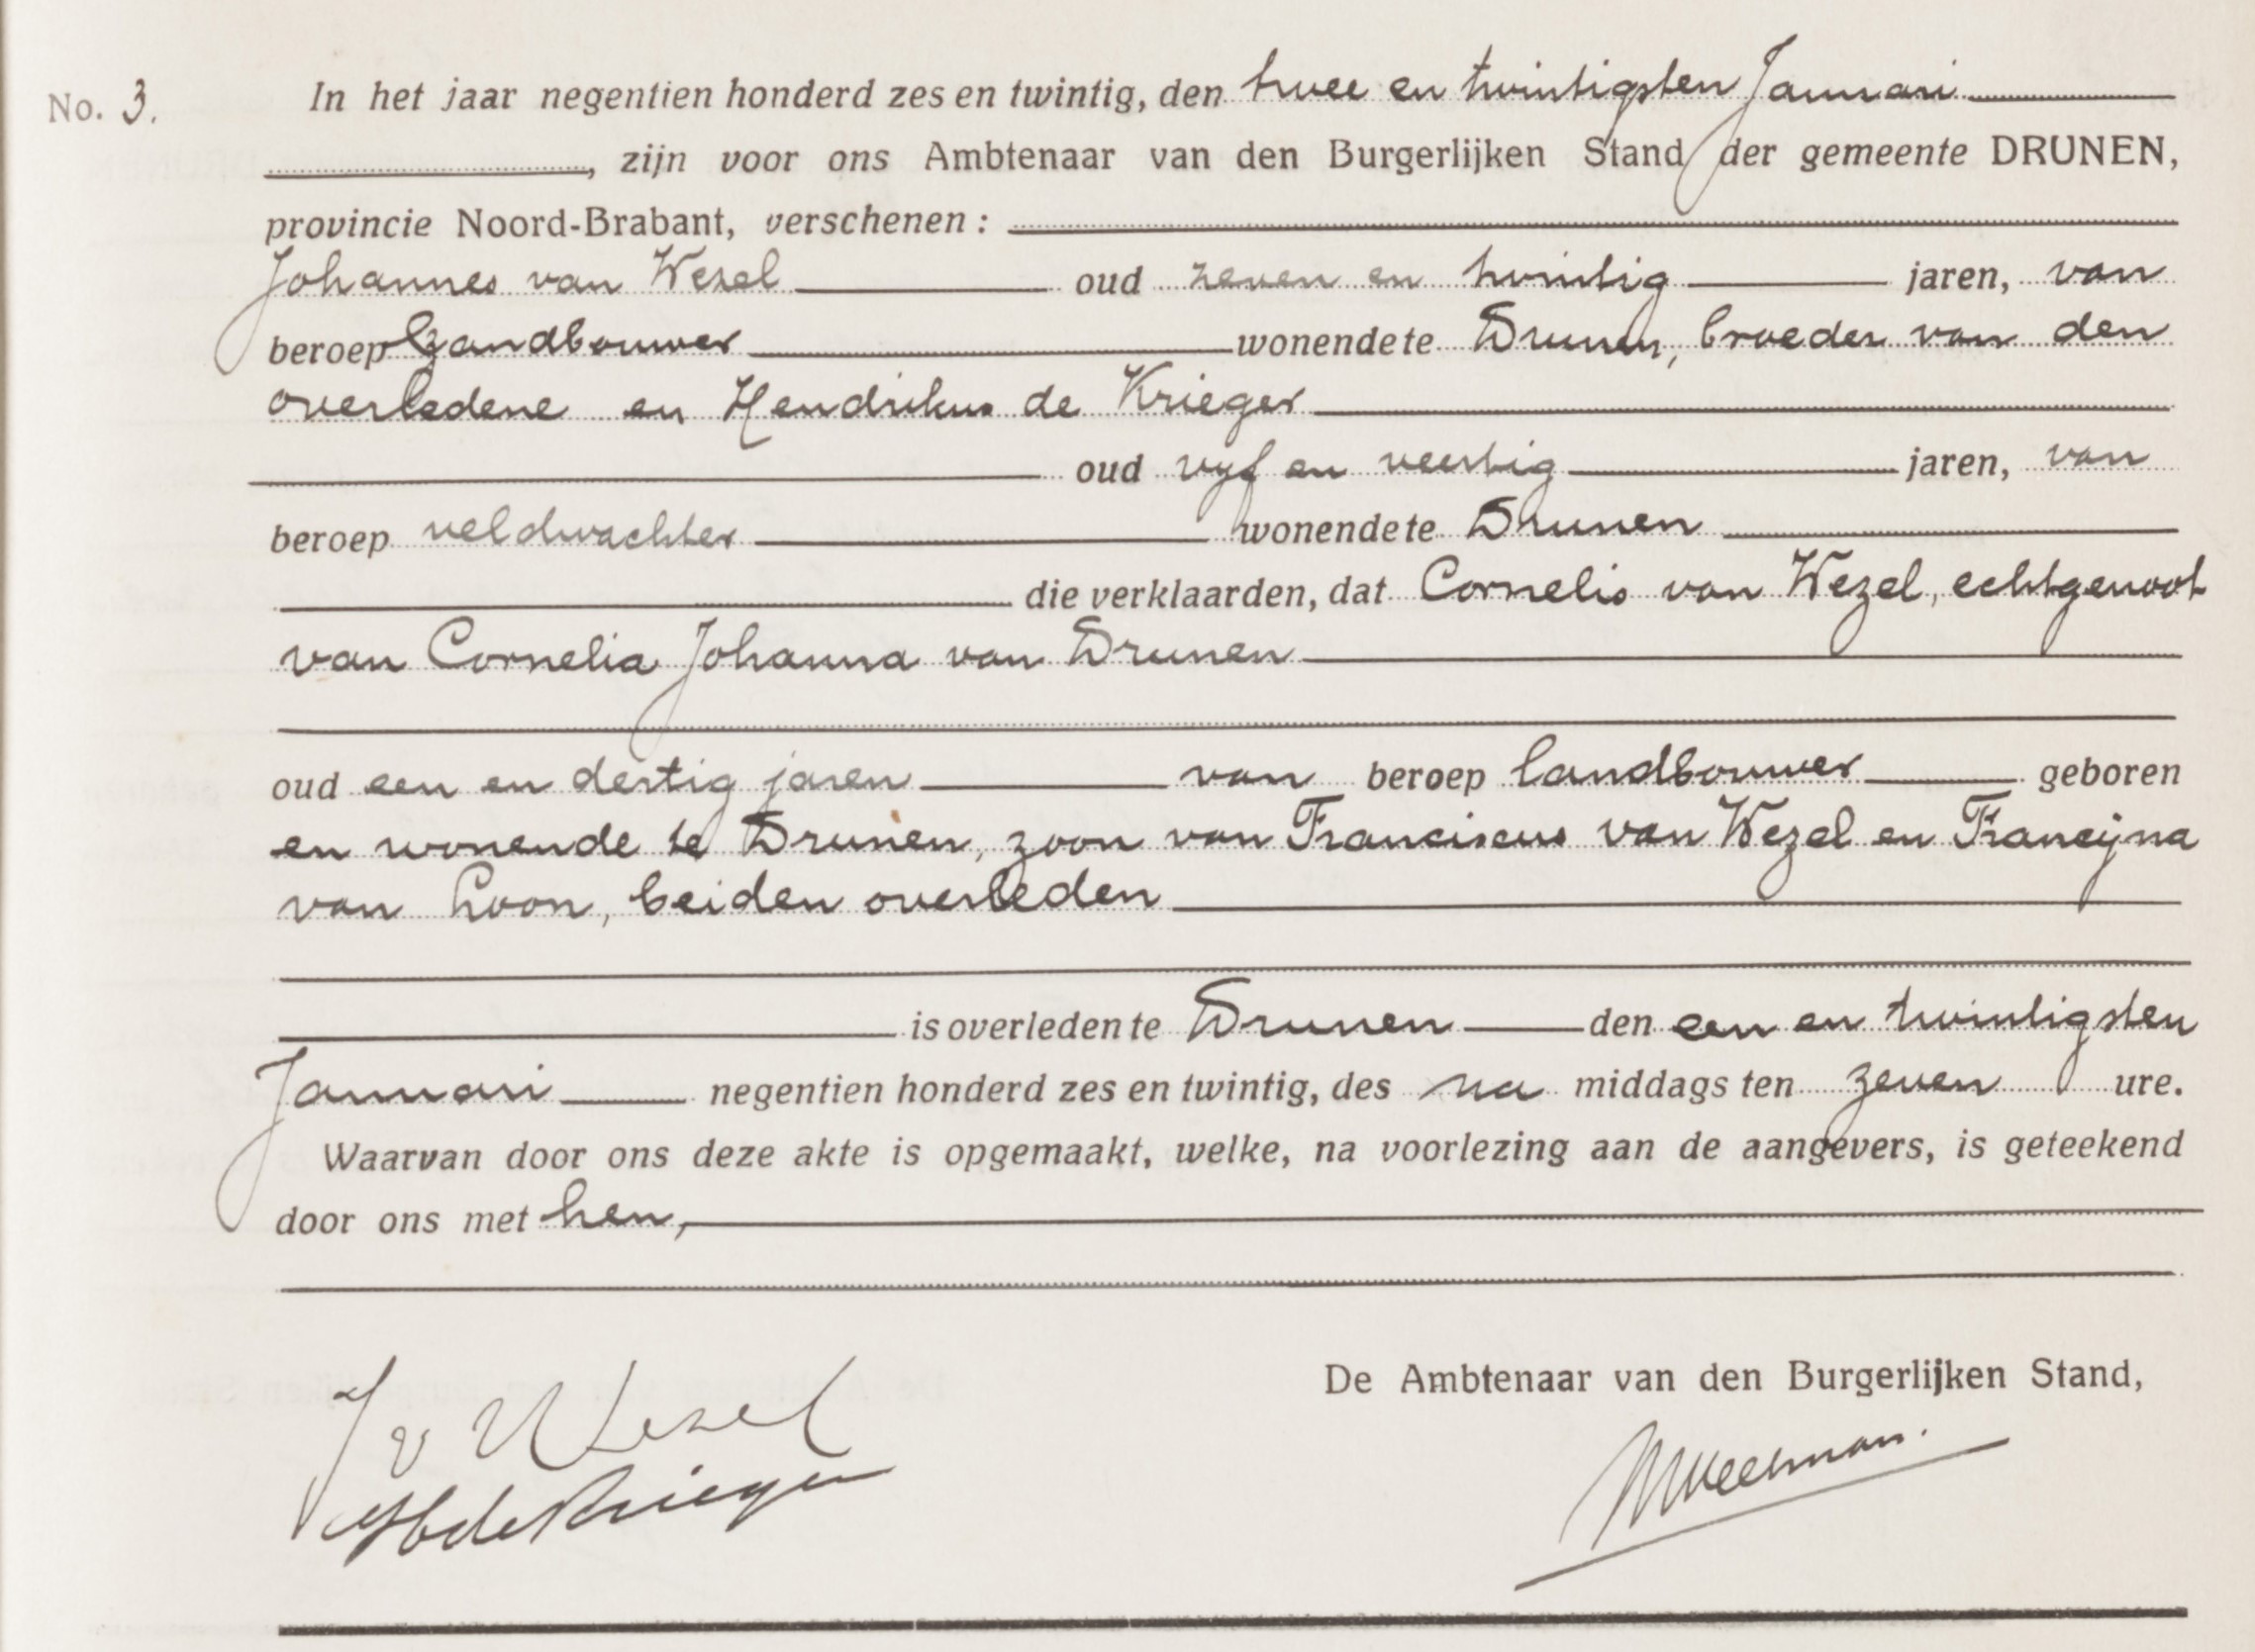 No. 3. In het jaar negentien honderd zes en twintig, den twee en twintigsten Januari
, zijn voor ons Ambtenaar van den Burgerlijken Stand der gemeente DRUNEN,
provincie Noord-Brabant, verschenen:
Johannes van Wezel oud zeven en twintig jaren, van
beroep landbouwer wonende te Drunen, broeder van den
overledene en Hendrikus de Krieger
oud vijf en veertig jaren, van
beroep veldwachter wonende te Drunen
die verklaarden, dat Cornelis van Wezel, echtgenoot
van Cornelia Johanna van Drunen
oud een en dertig jaren van beroep landbouwer geboren
en wonende te Drunen, zoon van Franciscus van Wezel en Francijna
van Loon, beiden overleden
is overleden te Drunen den een en twintigsten
Januari negentien honderd zes en twintig, des na middags ten zeven ure.
Waarvan door ons deze akte is opgemaakt, welke, na voorlezing aan de aangevers, is geteekend
door ons met hen,
De Ambtenaar van den Burgerlijken Stand,
J v Wezel
H de Krieger